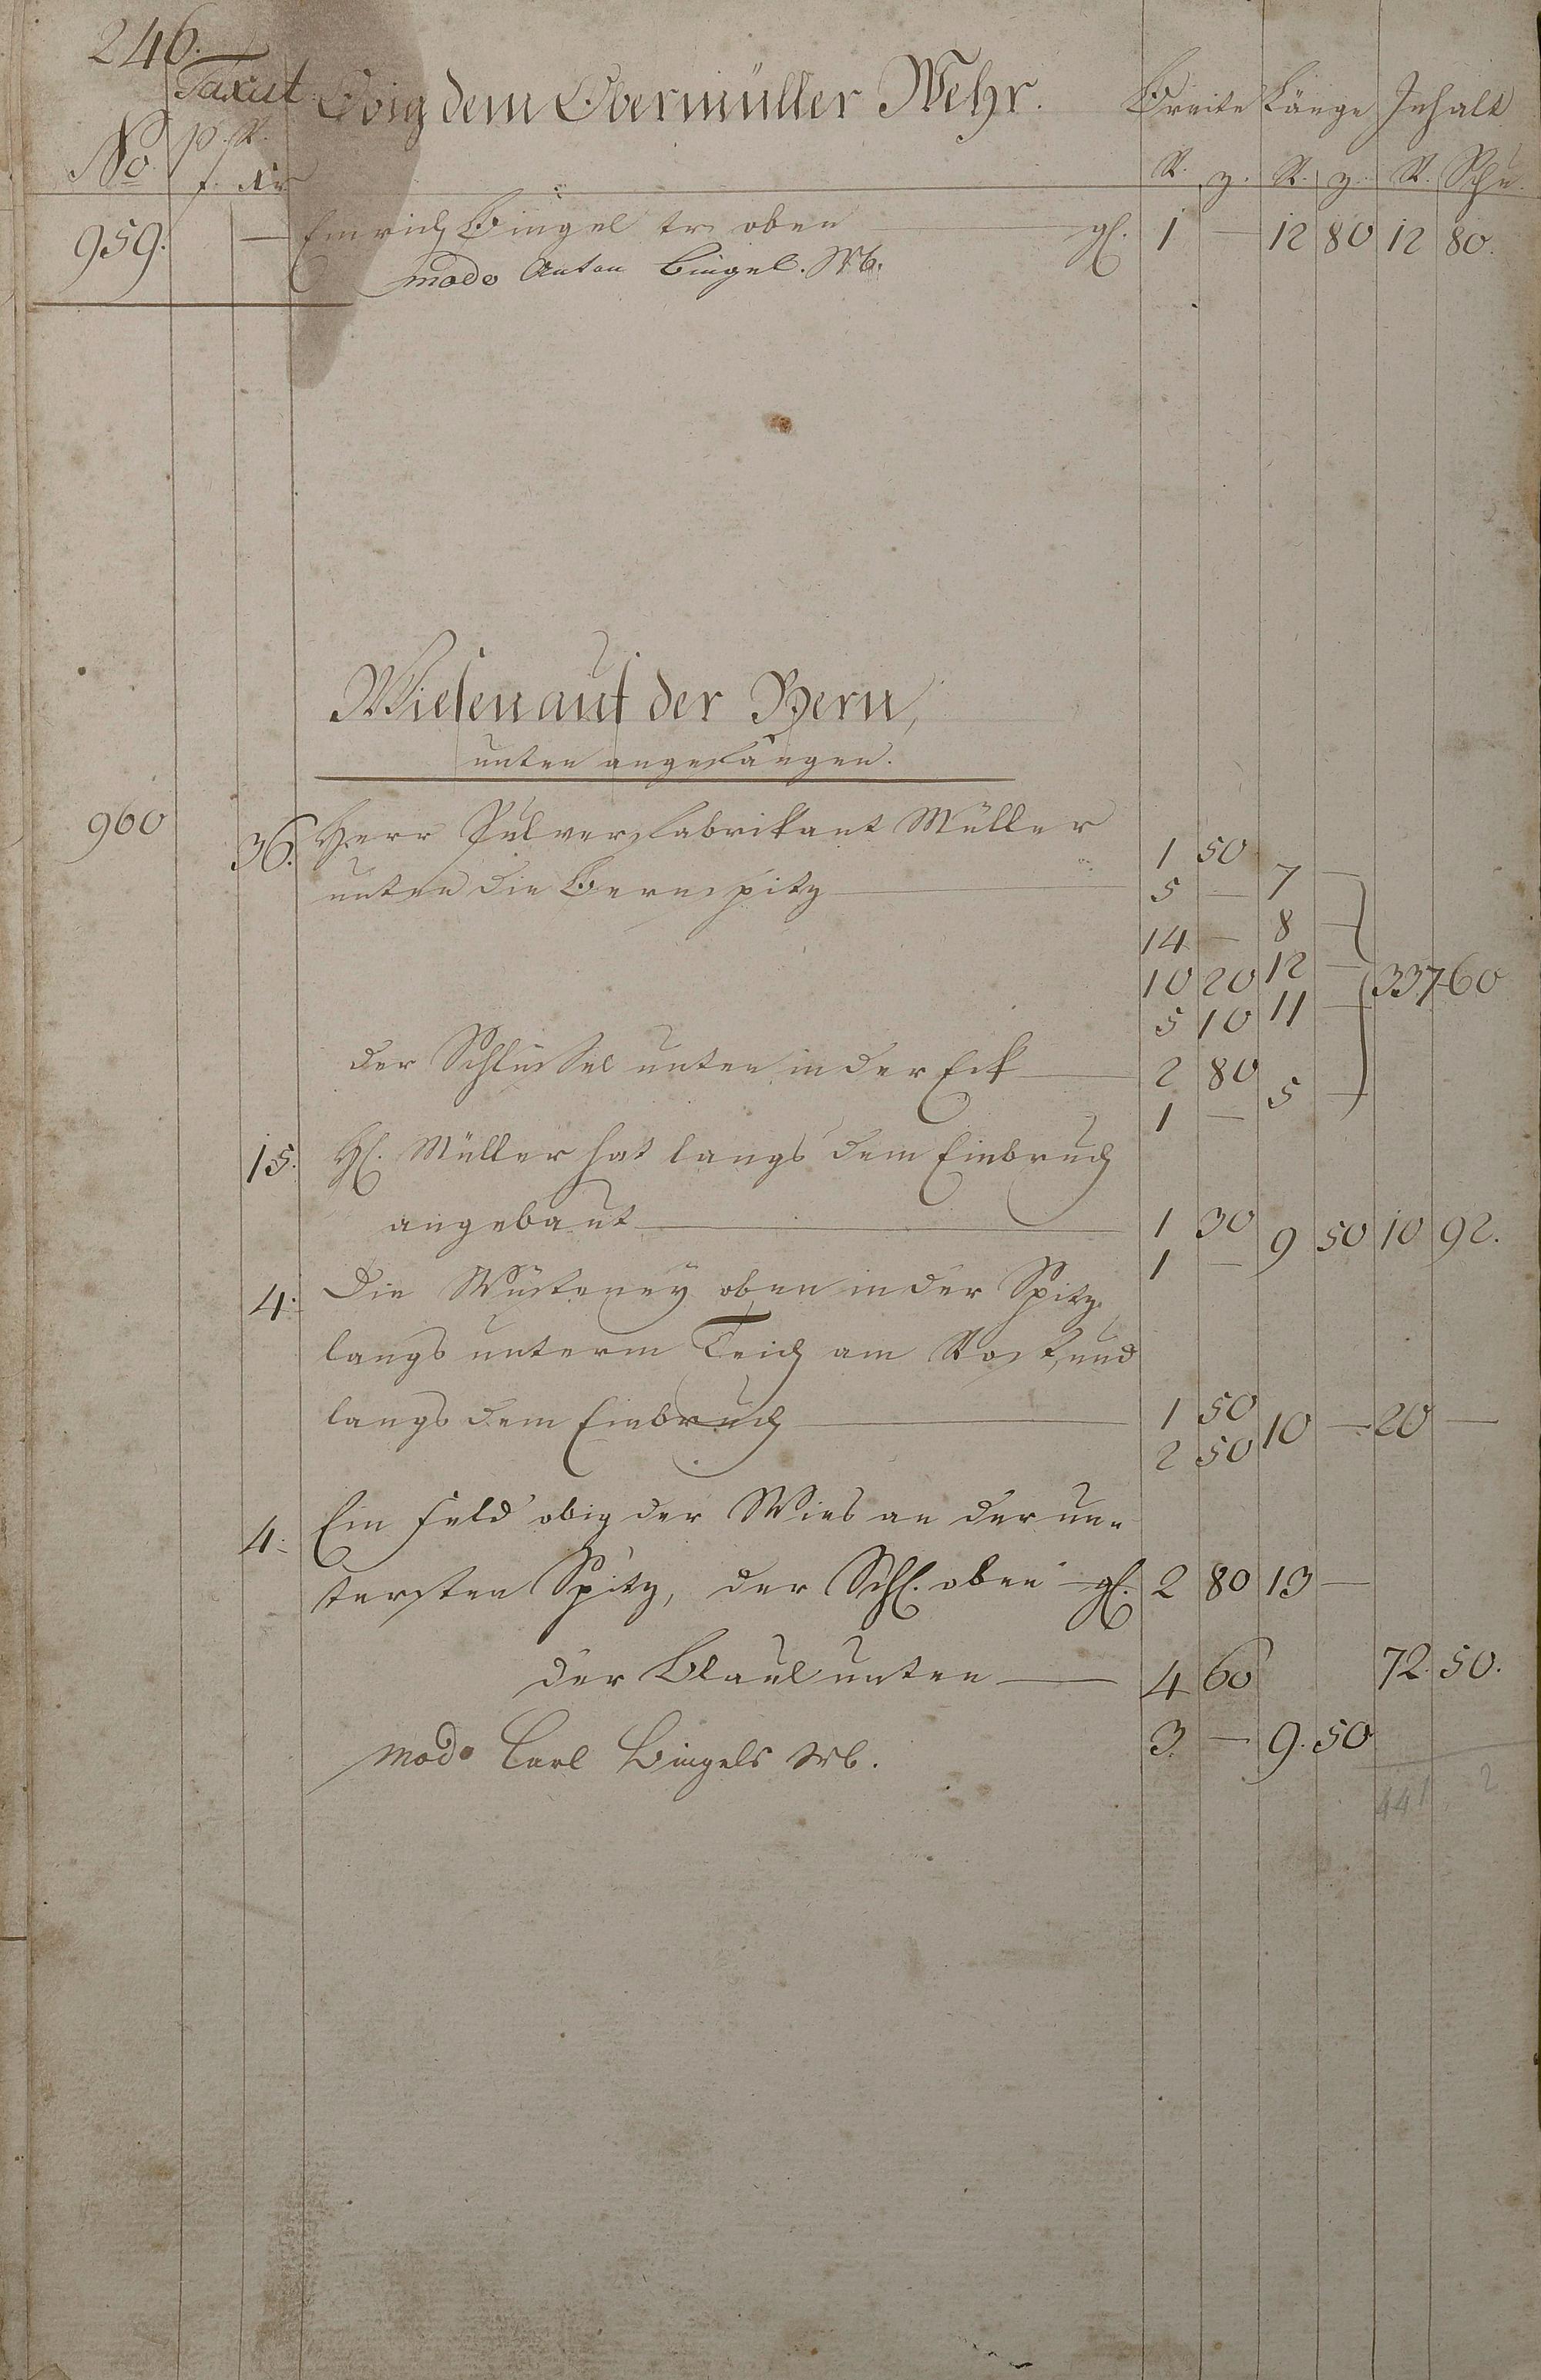 246.
Taxat Obig dem Obermüller Wehr. Breite Länge Inhalt
No p. R. R. z. R. z. R. Schu.
f. Xr
959. — Emrich Bingel tr. oben gl. 1 — 12 80 12 80.
modo Anton Bingel. Wb.
Wiesen auf der Bern,
unten angefangen.
960 36. Herr Pulverfabrikant Müller 1 50
unten die Bernspitz 5 — 7 —
14 — 8 —
10 20 12 — 337 60
5 10 11 —
der Schlüssel unten in der Eck 2 80 5 —
1 —
15. H. Müller hat langs dem Einbruch
angebaut 1 30 9 50 10 92.
1 —
4. Die Wüsteney oben in der Spitz
langs unterm Teich am Rost, und
langs dem Einbruch 1 50 10 — 20 —
2 50
4. Ein Feld obig der Wies an der un-
tersten Spitz, der Schl. oben gl. 2 80 13 —
der Blaul unten 4 60 72. 50.
modo Carl Bingels Wb. 3. — 9. 50
441 2